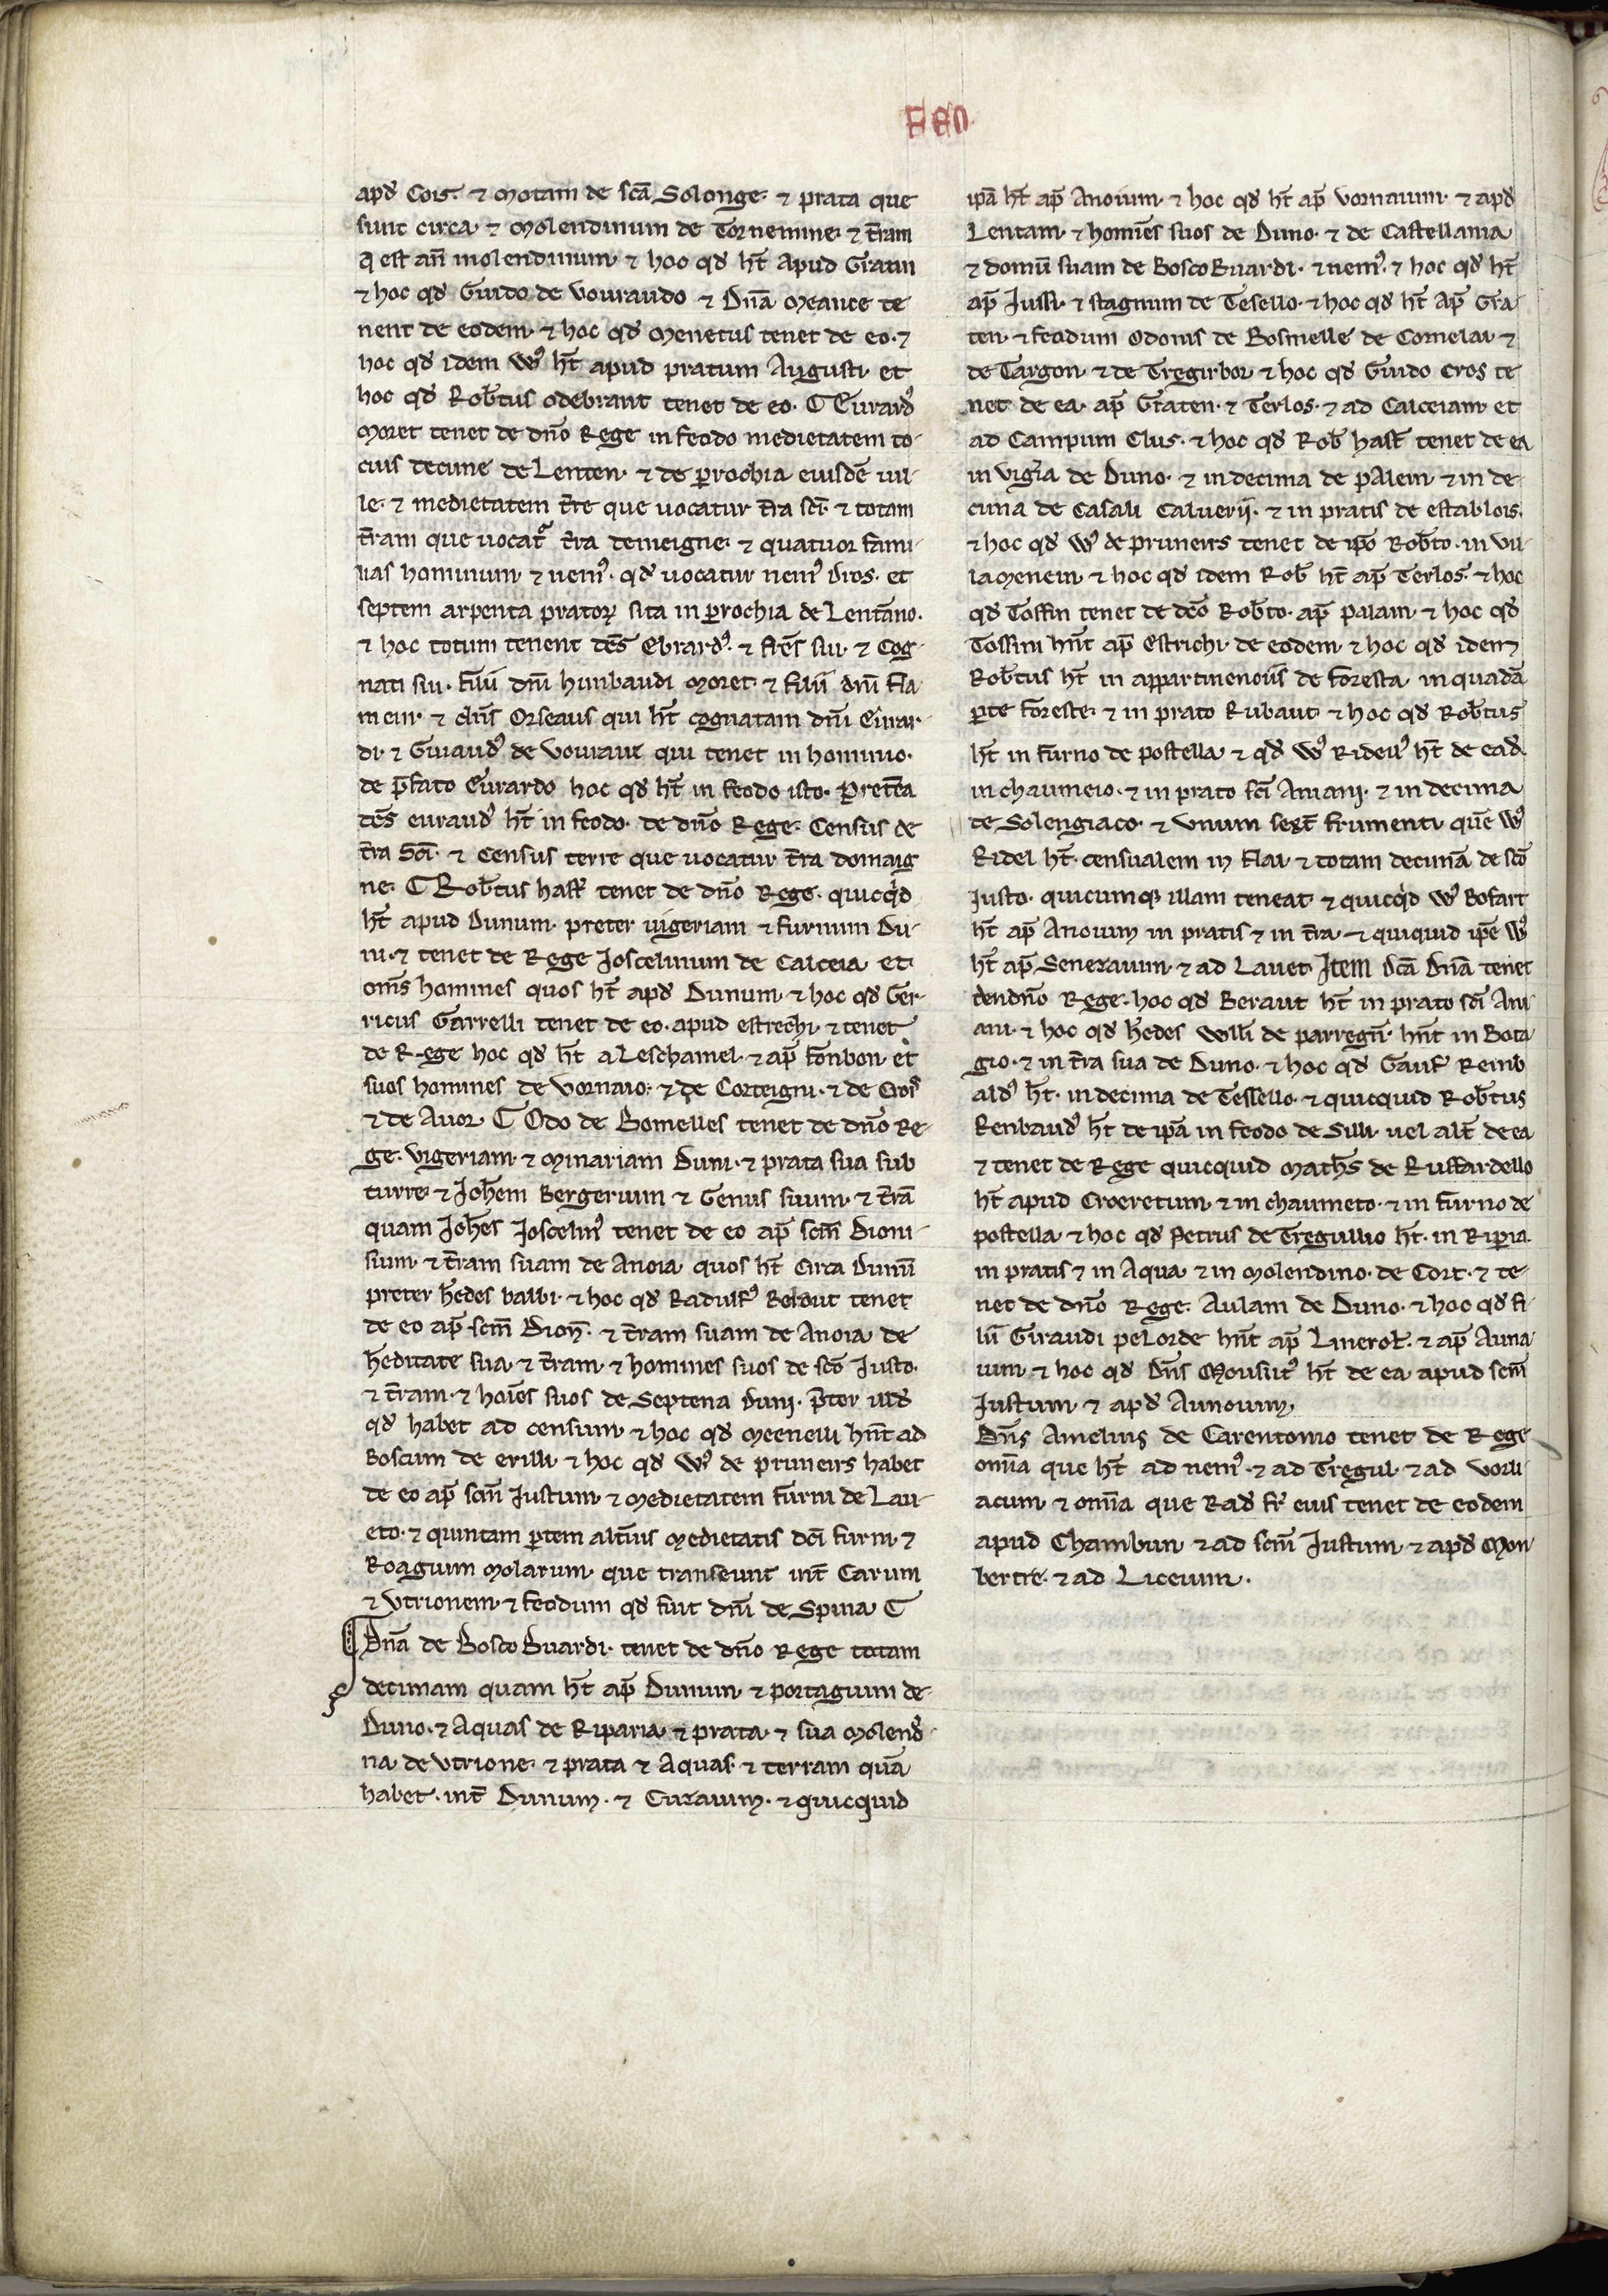 FEO
apđ Cors. ⁊ Motam de sc̄a Solonge. ⁊ prata que
sunt circa. ⁊ Molendinum de Tornemine. ⁊ t̄ram
q̄ est an̄ molendinum. ⁊ hoc qđ ht̄ Apud Gratin
⁊ hoc qđ Guido de Vouraudo ⁊ Dn̄a Meance te
nent de eodem. ⁊ hoc qđ Menetus tenet de eo. ⁊
hoc qđ idem Wꝰ ht̄ apud pratum Augusti. et
hoc qđ Rob̄tus odebrant tenet de eo. ⸿ Eurardꝰ
Moret tenet de dn̄o Rege in feodo medietatem to-
cius decime de Lenten. ⁊ de p̄rochia eiusdē uil-
le. ⁊ medietatem t̄re que uocatur t̄ra sc̄i. ⁊ totam
t̄ram que uocat᷑ t̄ra demeigne. ⁊ quatuor fami-
lias hominum ⁊ nemꝰ. qđ uocatur nemꝰ Dros. et
septem arpenta pratoꝝ sita in p̄rochia de Lentāno.
⁊ hoc totum tenent dc̄s Ebrardꝰ. ⁊ fr̄es sui. ⁊ Cog-
nati sui. filii dn̄i hunbaudi Moret. ⁊ filii dn̄i Fla
meur. ⁊ dn̄s Orseaus qui ht̄ cognatam dn̄i Eurar-
di. ⁊ Guiaudꝰ de Vouraue qui tenet in hominio.
de p̄fato Eurardo hoc qđ ht̄ in feodo isto. Pret̄ea
dc̄s euraudꝰ ht̄ in feodo. de dn̄o Rege. Census de
t̄ra Sc̄i. ⁊ Census terre que uocatur t̄ra domaig
ne. ⸿ Rob̄tus hast̄ tenet de dn̄o Rege. quicqͥd
ht̄ apud Dunum. preter uigeriam ⁊ furnum Du-
ni. ⁊ tenet de Rege Joscelinum de Calceia et
om̄s homines quos ht̄ apđ Dunum. ⁊ hoc qđ Ger-
ricus Garrelli tenet de eo. apud estrechi. ⁊ tenet
de Rege hoc qđ ht̄ a Leschamel. ⁊ ap̄ fonbon et
suos homines de Vornaio. ⁊ de Corteigni. ⁊ de Cros
⁊ de Auor. ⸿ Odo de Bomelles tenet de dn̄o Re-
ge. Vigeriam. ⁊ Minariam Duni. ⁊ prata sua sub
turre. ⁊ Joh̄em Bergerium ⁊ Genus suum. ⁊ t̄rā
quam Joh̄es Joscelinꝰ tenet de eo ap̄ sc̄m Dioni-
sium. ⁊ t̄ram suam de Anoia quos ht̄ Circa Dunū
preter h̄edes balbi. ⁊ hoc qđ Radulfꝰ Relout tenet
de eo ap̄ sc̄m Dion̄. ⁊ t̄ram suam de Anoia de
h̄editate sua. ⁊ t̄ram. ⁊ homines suos de sc̄o Justo.
⁊ t̄ram. ⁊ hoīes suos de Septena Duni. p̄ter illđ
qđ habet ad censum. ⁊ hoc qđ Meenelli hn̄t ad
Boscum de erilli. ⁊ hoc qđ Wꝰ de pruneirs habet
de eo ap̄ sc̄m Justum. ⁊ Medietatem furni de Lau-
eto. ⁊ quintam p̄tem alt̄ius Medietatis dc̄i furni. ⁊
Roagium Molarum. que transeunt int̄ Carum
⁊ Vtrionem. ⁊ feodum qđ fuit dn̄i de Spina ⸿
Dn̄a de Bosco Buardi. tenet de dn̄o Rege totam
decimam quam ht̄ ap̄ Dunum. ⁊ portagium de-
Duno. ⁊ Aquas de Riparia. ⁊ prata. ⁊ sua Molend̄-
na. de Vtrione. ⁊ prata ⁊ Aquas. ⁊ terram quā
habet. int̄ Dunum. ⁊ Curauum. ⁊ quicquid
ip̄a ht̄ ap̄ Anoium. ⁊ hoc qđ ht̄ ap̄ Vornaium. ⁊ apđ
Lentam. ⁊ homīes suos de Duno. ⁊ de Castellania
⁊ domū suam de Bosco Buardi. ⁊ nemꝰ. ⁊ hoc qđ ht̄
ap̄ Jussi. ⁊ stagnum de Tesello. ⁊ hoc qđ ht̄ Ap̄ Gra-
ten. ⁊ feodum Odonis de Bosmelle de Cornelai. ⁊
de Targon. ⁊ de Tregirbor. ⁊ hoc qđ Guido Cros te
net de ea. ap̄ Graten. ⁊ Terlos. ⁊ ad Calceiam. et
ad Campum Clus. ⁊ hoc qđ Rob̄ hast̄ tenet de ea
in Vigr̄ia de Duno. ⁊ in decima de palem. ⁊ in de-
cima de Casali Caluerij. ⁊ in pratis de establois.
⁊ hoc qđ Wꝰ de pruneirs tenet de ip̄o Rob̄to. in Vil-
la Menein. ⁊ hoc qđ idem Rob̄ ht̄ ap̄ Terlos. ⁊ hoc
qđ Tossin tenet de dc̄o Rob̄to. ap̄ Palam. ⁊ hoc qđ
Tossini hn̄t ap̄ Estrichi. de eodem. ⁊ hoc qđ idem
Rob̄tus ht̄ in appartinenciis de Foresta. in quadā
p̄te Foreste. ⁊ in prato Rubaut. ⁊ hoc qđ Rob̄tus
ht̄ in furno de postella. ⁊ qđ Wꝰ Ridellꝰ ht̄ de eađ.
in chaumeio. ⁊ in prato sc̄i Amani. ⁊ in decima
de Solengiaco. ⁊ Vnum sext̄ frumenti. quē Wꝰ
Ridel ht̄. censualem in Flai. ⁊ totam decimā de sc̄o
Justo. quicumqꝫ illam teneat. ⁊ quicqͥd Wꝰ Bofart
ht̄ ap̄ Anoium in pratis ⁊ in t̄ra. ⁊ quiquid ip̄e Wꝰ
ht̄ ap̄ Senerauum. ⁊ ad Lauet. Item dc̄a Dn̄a tenet
de dn̄o Rege. hoc qđ Beraut ht̄ in prato sc̄i Am-
ani. ⁊ hoc qđ h̄edes Willi de parregn̄. hn̄t in Bota-
gio. ⁊ in t̄ra sua de Duno. ⁊ hoc qđ Gauf̄ Remb
aldꝰ ht̄. in decima de Tessello. ⁊ quicquid Rob̄tus
Renbaudꝰ ht̄ de ip̄a in feodo de Silli. uel alt̄ de ea
⁊ tenet de Rege quicquid Math̄s de Ruffardello
ht̄ apud Croeretum. ⁊ in chaumeto. ⁊ in furno de
postella. ⁊ hoc qđ Petrus de Tregullio ht̄. in Rip̄ia.
in pratis ⁊ in Aqua. ⁊ in Molendino. de Cort. ⁊ te-
net de dn̄o Rege. Aulam de Duno. ⁊ hoc qđ fi-
lii Giraudi pelorde hn̄t ap̄ Linerol̄. ⁊ ap̄ Auna-
ium. ⁊ hoc qđ Dn̄s Monsutꝰ ht̄ de ea. apud sc̄m
Justum. ⁊ apđ Aunoium.
Dn̄s Amelius de Carentonio tenet de Rege
om̄ia que ht̄ ad nemꝰ. ⁊ ad Tregul. ⁊ ad Vorli-
acum. ⁊ om̄ia que Rad̄ fr̄ eius tenet de eodem
apud Chambun. ⁊ ad sc̄m Justum. ⁊ apđ Mon
bertre. ⁊ ad Liceium.